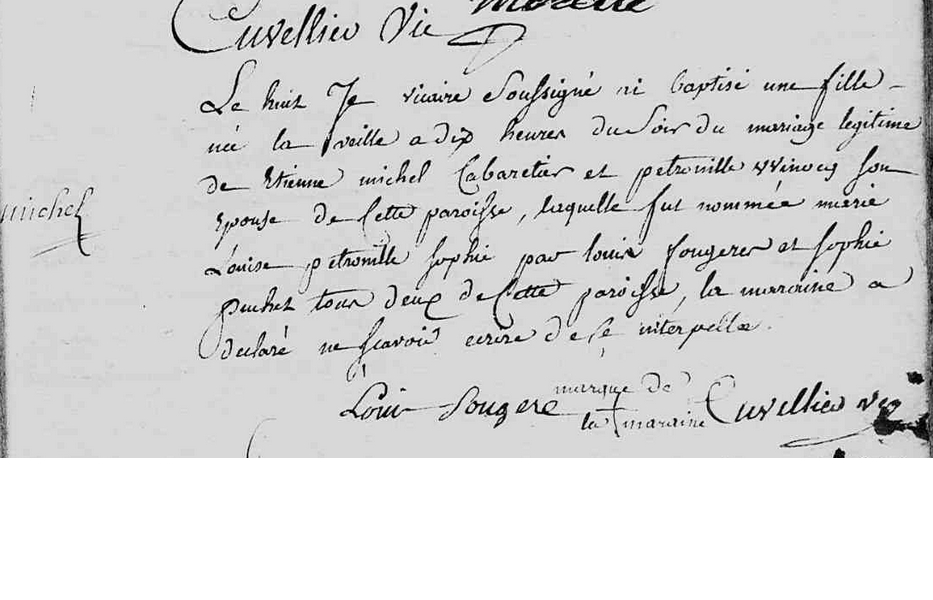 Cuvellier Vic
Le huit Je vicaire Soussigné ai baptisé une fille
née la veille a dix heures du Soir du mariage legitime
de Etienne michel Cabaretier et petronille son
epouse de Cette paroisse, laquelle fut nommée marie
Louise petronille sophie par louis fougere et sophie
tous deux de Cette paroisse, la maraine a
michel
declaré ne scavoir ecrire de ce interpellé.
marque de
Louis fougere la maraine Cuvellier vic